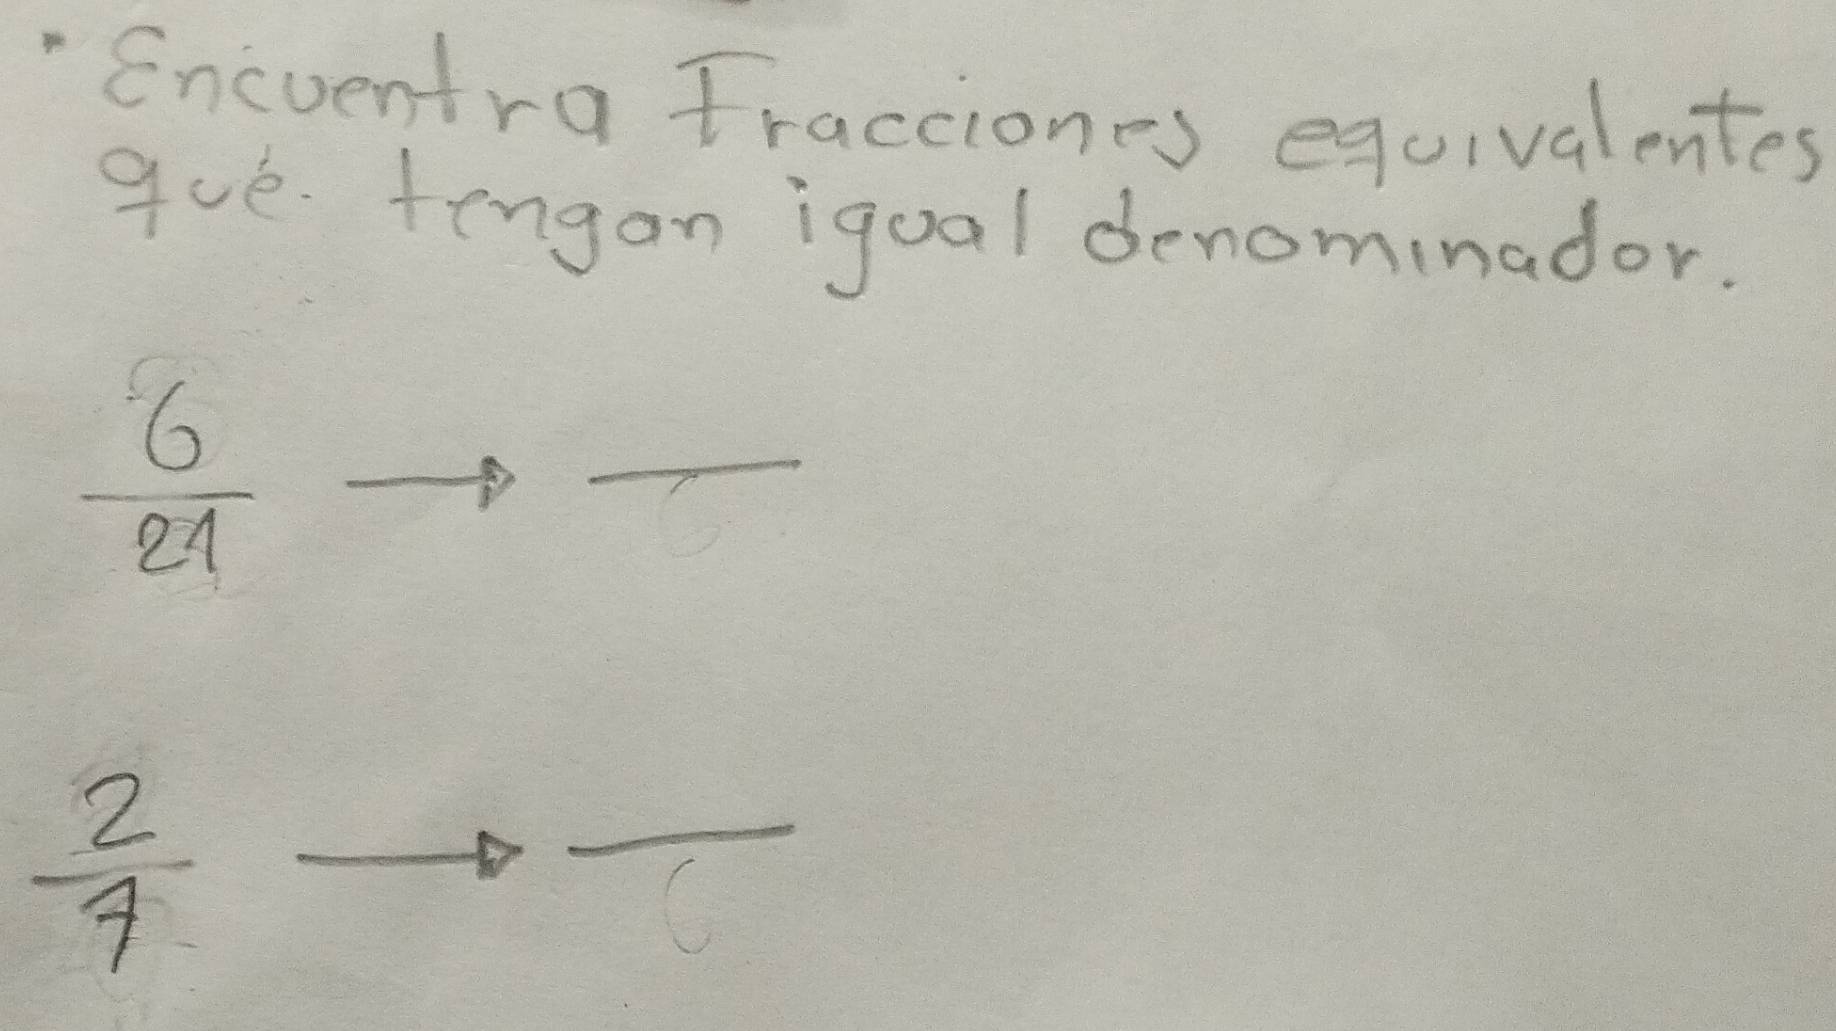 Encuentra Fracciones equivalentes
qué. tengan igual denominador.
6
21
2
7